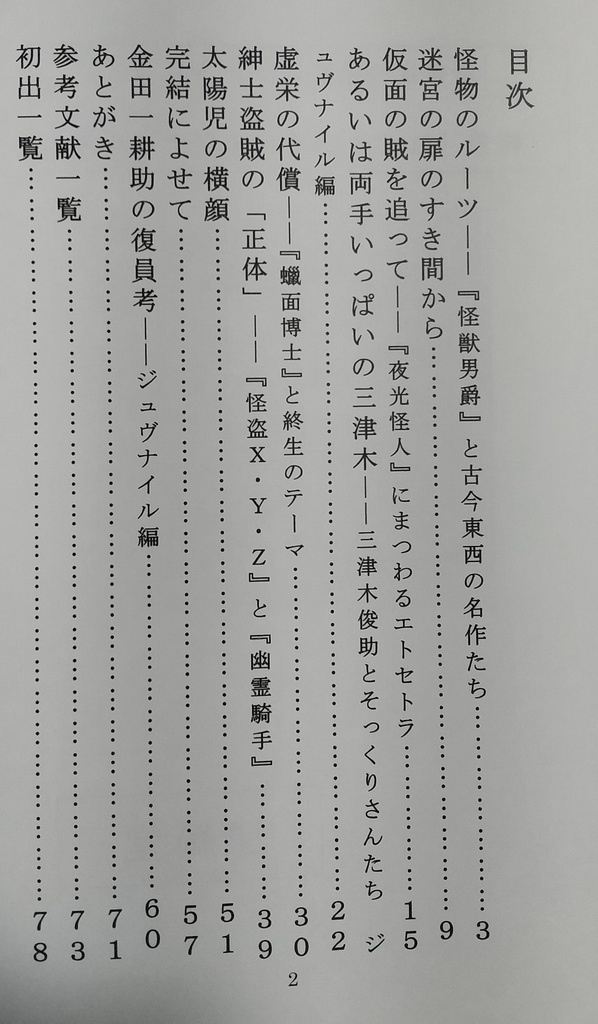 目次
怪物のルーツ――『怪獣男爵』と古今東西の名作たち……………………3
迷宮の扉のすき間から……………………………………………………9
仮面の賊を追って――『夜光怪人』にまつわるエトセトラ………………15
あるいは両手いっぱいの三津木――三津木俊助とそっくりさんたち ジ
ュヴナイル編……………………………………………………………22
虚栄の代償――『蠟面博士』と終生のテーマ……………………………30
紳士盗賊の「正体」――『怪盗X・Y・Z』と『幽霊騎手』……………39
太陽児の横顔……………………………………………………………51
完結によせて……………………………………………………………57
金田一耕助の復員考――ジュヴナイル編………………………………60
あとがき…………………………………………………………………71
参考文献一覧……………………………………………………………73
初出一覧…………………………………………………………………78
2